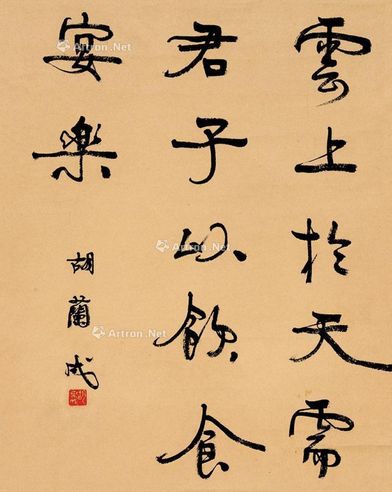 雲上於天需
君子以飲食
宴樂
胡蘭成
Artron.Net
Artron.Net
Artron.Net
Artron.Net